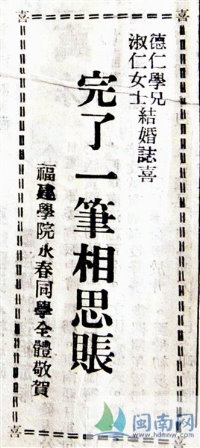 喜 喜
德仁學兄
淑仁女士結婚誌喜
完了一筆相思賬
福建學院永春同學全體敬賀
喜 喜
闽南网
www.hdmnw.com